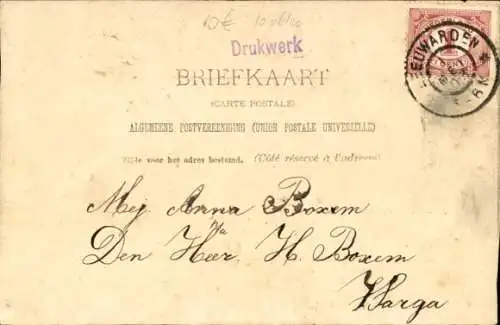 10€
Drukwerk
LEEUWARDEN
BRIEFKAART
(CARTE POSTALE)
ALGEMEENE POSTVEREENIGING (UNION POSTALE UNIVERSELLE)
Zijde voor het adres bestemd. (Côté réservé à l'adresse)
Mej Anna Boxem
p/a
Den Heer H. Boxem
Warga